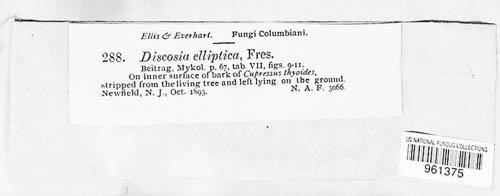 Ellis & Everhart. Fungi Columbiani.
288. Discosia elliptica, Fres.
Beitrag, Mykol. p. 67, tab. VII, figs. 9-11.
On inner surface of bark of Cupressus thyoides,
stripped from the living tree and left lying on the ground.
Newfield, N. J., Oct. 1893. N. A. F. 3066.
US NATIONAL FUNGUS COLLECTIONS
961375